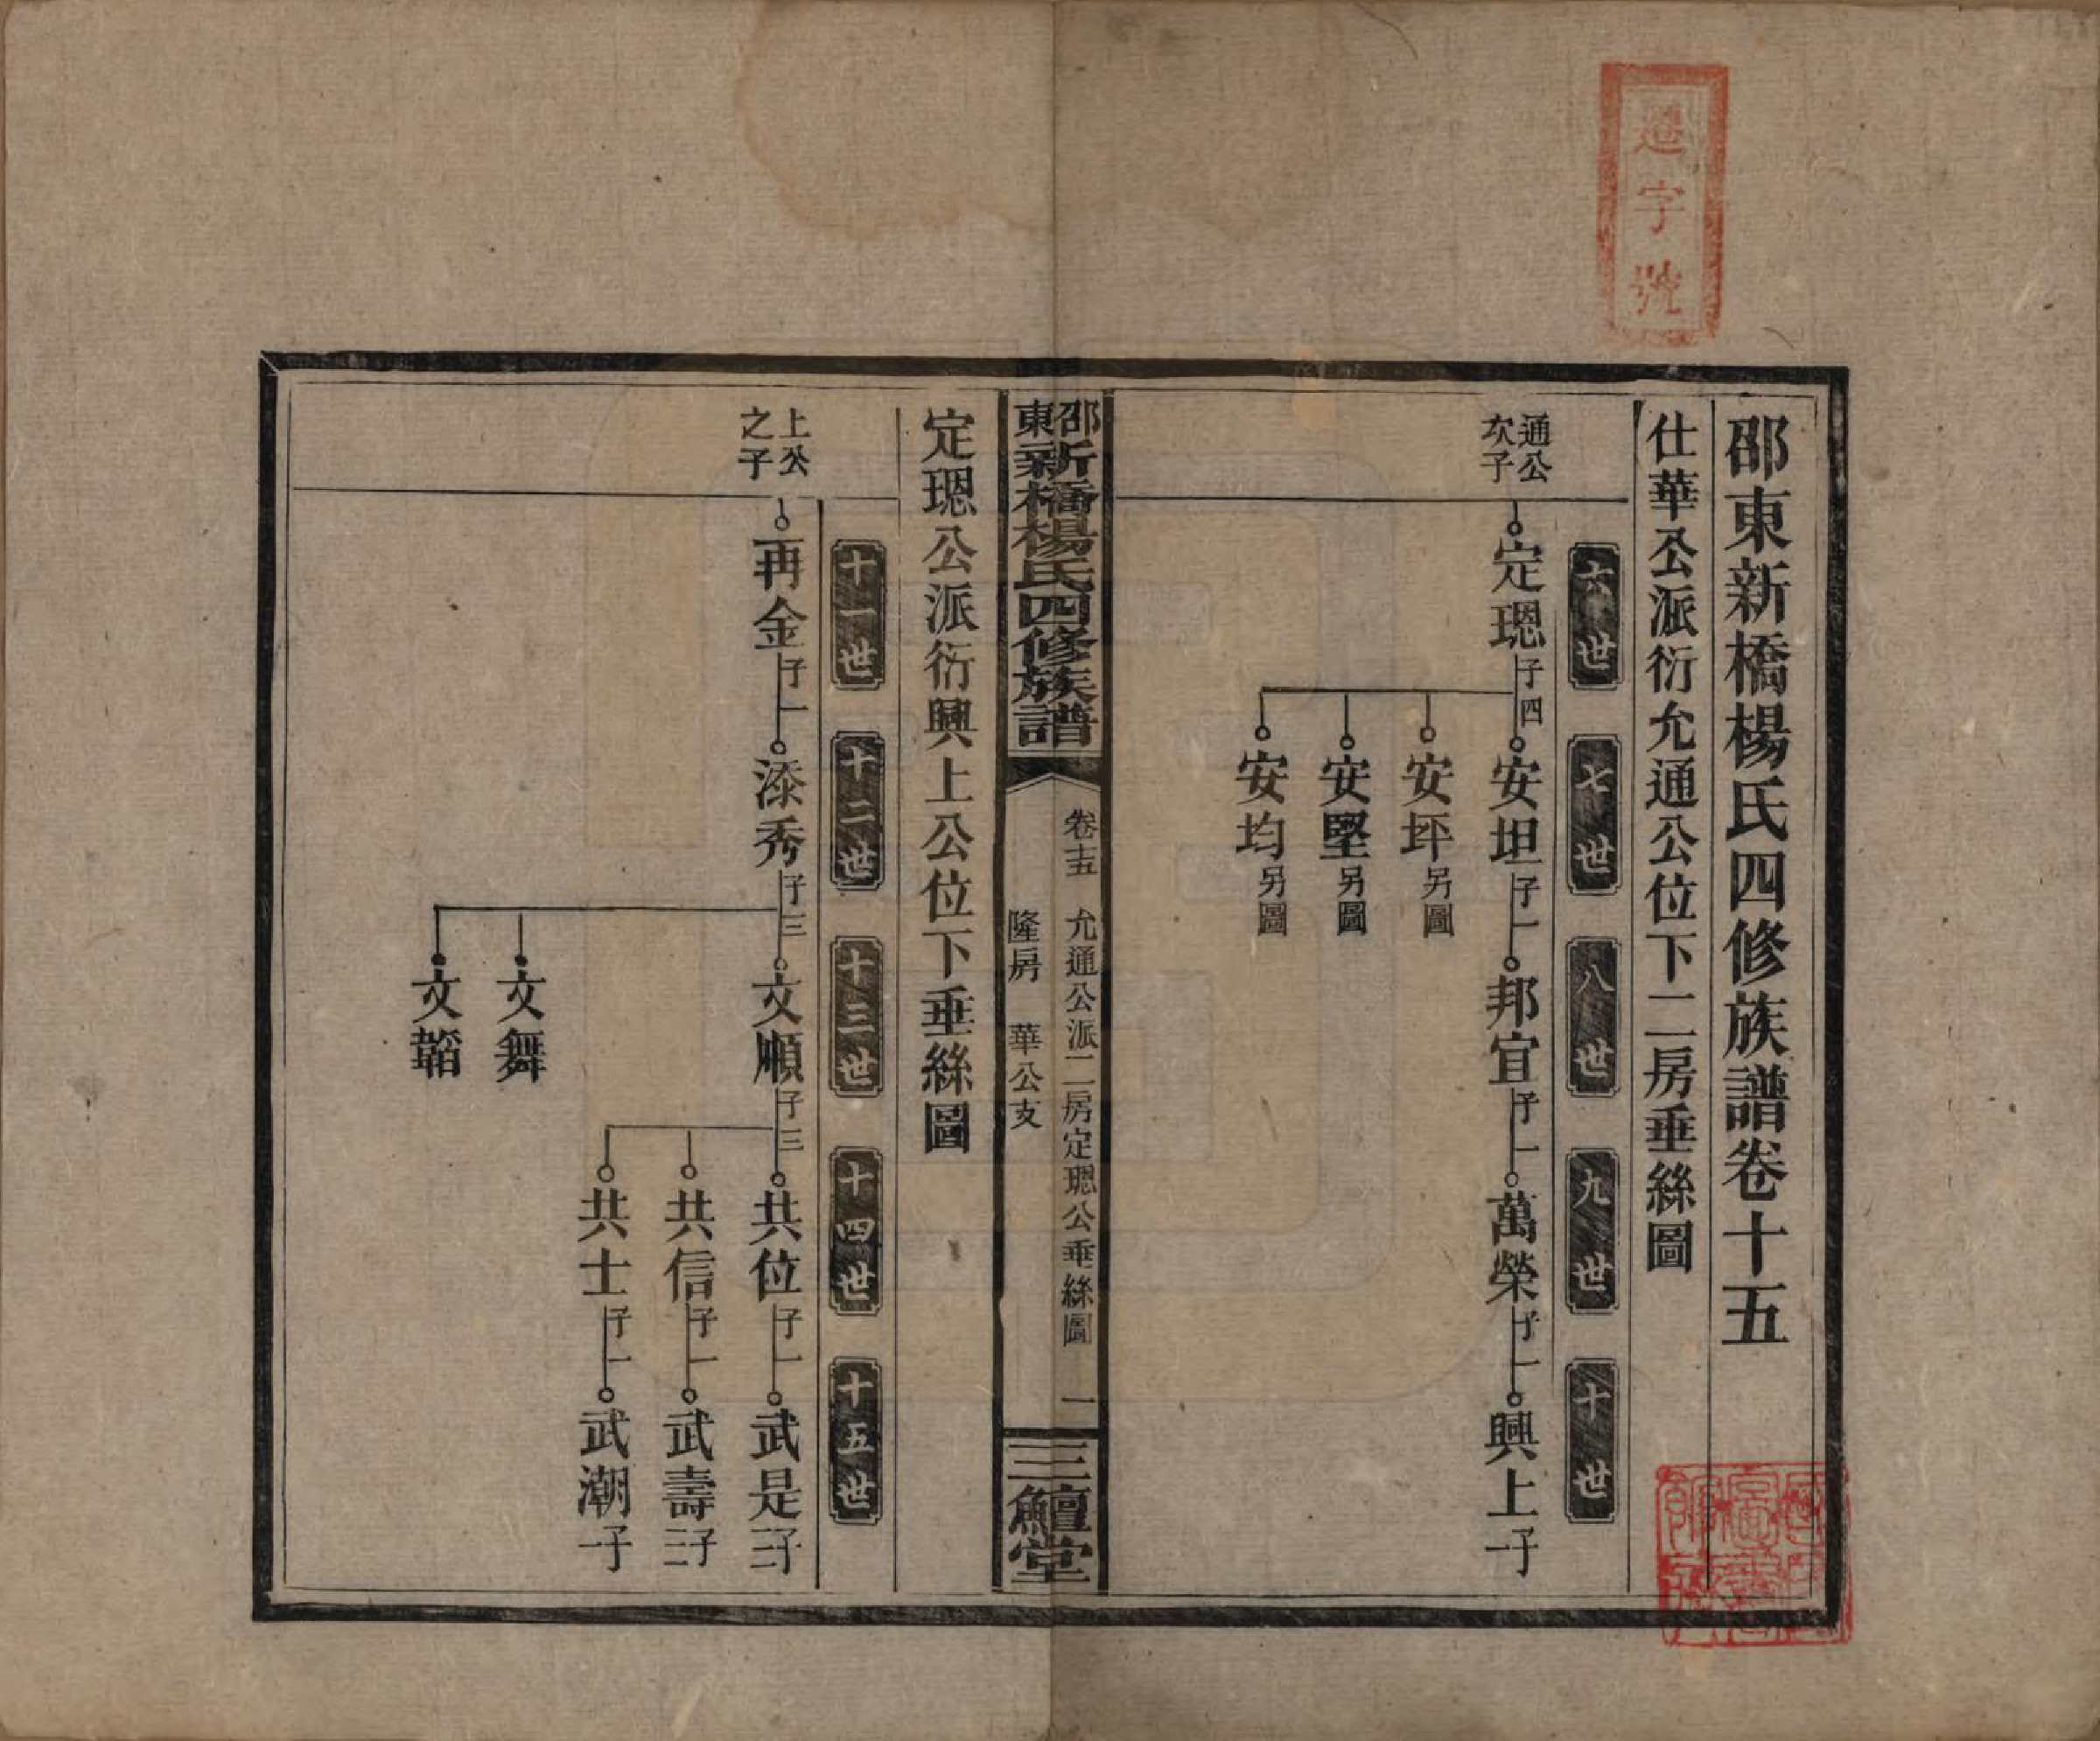 邵東新橋楊氏四修族譜卷十五
仕華公派衍允通公位下二房垂絲圖
六世
七世
八世
九世
十世
通公
次子
定璁子四
安坦子一
邦宜子一
萬榮子一
興上子一
安坪另圖
安堅另圖
安均另圖
邵東新橋楊氏四修族譜
卷十五 允通公派二房定璁公垂絲圖 一
隆房 華公支
三鱣堂
定璁公派衍興上公位下垂絲圖
十一世
十二世
十三世
十四世
十五世
上公
之子
再金子一
漆秀子三
文順子三
共位子一
武是子二
共信子一
武壽子二
共士子一
武潮子一
文舞
文韜
字號